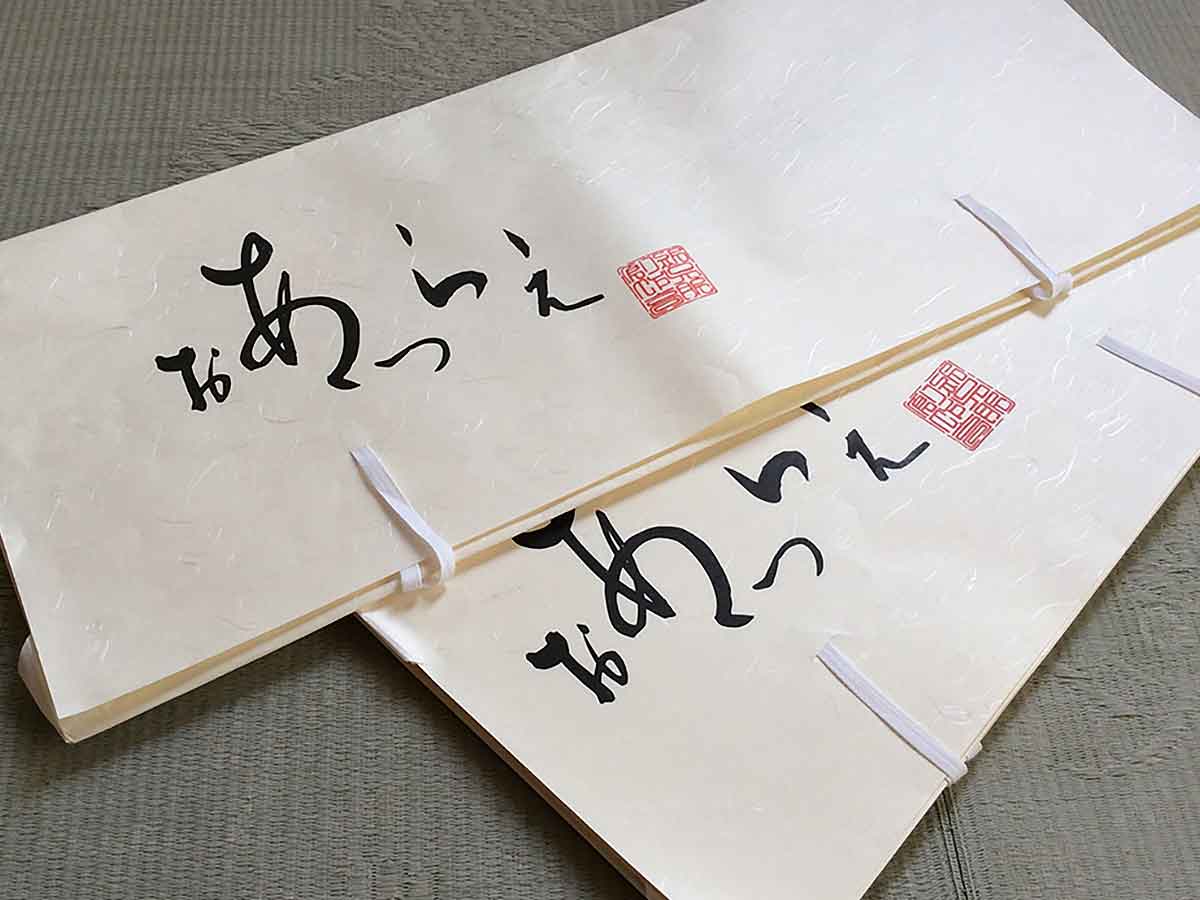 おあつらえ
おあつらえ